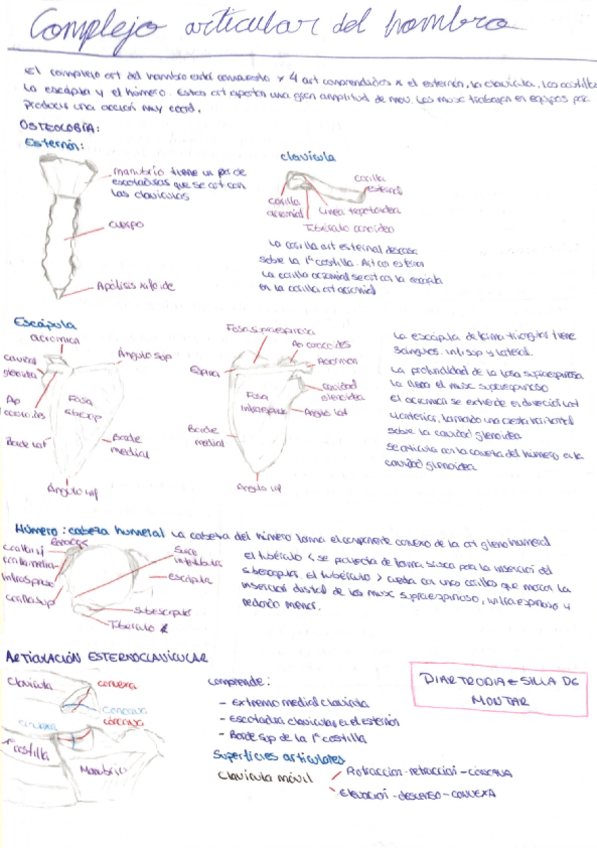 Complejo articular del hombro
El complejo art del hombro está compuesto x 4 art comprendidas x el esternón, la clavícula, las costillas
la escápula y el húmero. Estas art aportan una gran amplitud de mov. Los musc trabajan en equipos para
producir una acción muy coord.
OSTEOLOGÍA:
Esternón:
manubrio tiene un par de
escotaduras que se art con
las clavículas
cuerpo
Apófisis xifoide
clavícula
carilla
esternal
carilla
acromial
Línea trapezoidea
Tubérculo conoideo
La carilla art esternal descansa
sobre la 1ª costilla. Art con esternón
La carilla acromial se art con la escápula
en la carilla art acromial
Escápula
acromion
Ángulo sup
cavidad
glenoidea
Ap
coracoides
Fosa
subescap
Borde lat
Borde
medial
Ángulo inf
Fosa supraespinosa
Ap coracoides
Acromion
Espina
cavidad
glenoidea
Fosa
infraespinosa
Angulo lat
Borde
medial
Angulo inf
La escápula de forma triangular tiene
3 angulos. inf, sup y lateral.
La profundidad de la fosa supraespinosa
la llena el musc supraespinoso
El acromion se extiende en dirección lat
y anterior, formando una cresta horizontal
sobre la cavidad glenoidea
Se articula con la cabeza del húmero en la
cavidad glenoidea
Húmero: cabeza humeral La cabeza del húmero forma el componente convexo de la art glenohumeral
carilla inf
carilla media
infraespinoso
carilla sup
Surco
intertubercular
escápula
subescapular
Tubérculo <
el tubérculo < se proyecta de forma brusca para la inserción del
subescapular. el tubérculo > cuenta con unas carillas que marcan la
inserción distal de los musc supraespinoso, infraespinoso y
redondo menor.
ARTICULACIÓN ESTERNOCLAVICULAR
Clavícula
convexa
concava
convexa
cóncava
1ª costilla
Manubrio
comprende:
- Extremo medial clavícula
- Escotadura clavicular en el esternón
- Borde sup de la 1ª costilla
DIARTRODIA E SILLA DE
MONTAR
Superficies articulares
Clavícula móvil
Protraccion - retraccion - CÓNCAVA
Elevación - descenso - CONVEXA